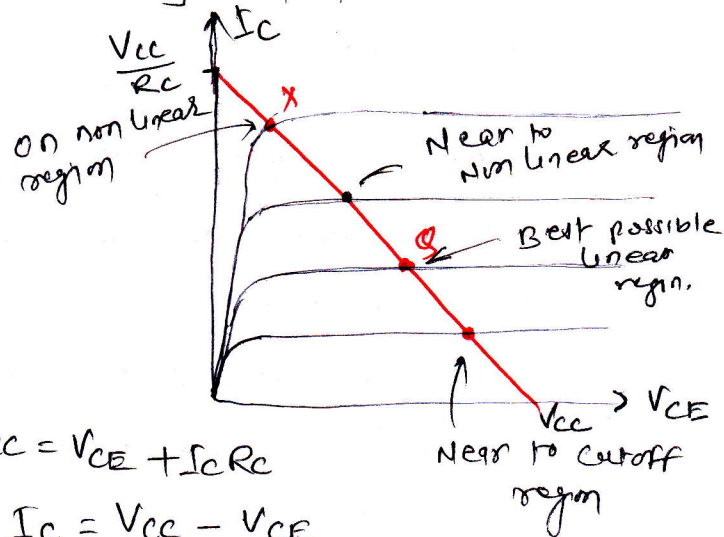 IC
VCC
RC
X
On non linear
region
Near to
Non linear region
Q
Best possible
linear
regin.
VCC
VCE
CC = VCE + ICRC
Near to cutoff
regon
IC = VCC - VCE